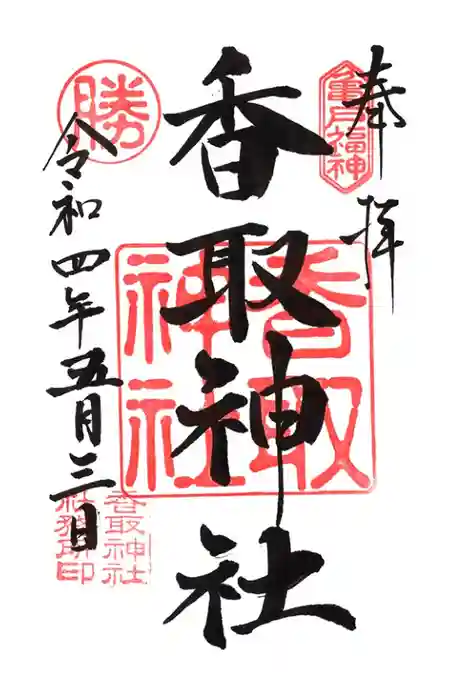 奉拝
亀戸福神
香取神社
香取
神社
勝
令和四年五月三日
香取神社
社務所印